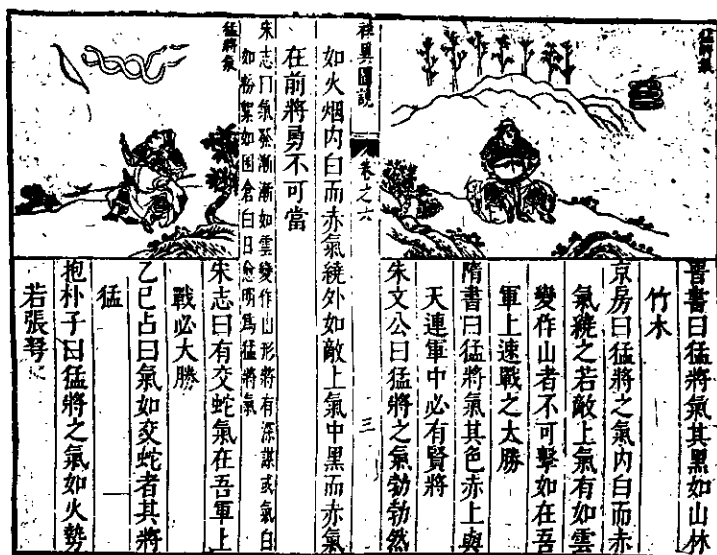 猛將氣
晉書曰猛將氣其黑如山林
竹木
京房曰猛將之氣内白而赤
氣繞之若敵上氣有如雲
變作山者不可擊如在吾
軍上速戰之大勝
隋書曰猛將氣其色赤上與
天連軍中必有賢將
朱文公曰猛將之氣勃勃然
如火烟内白而赤氣繞外如敵上氣中黑而赤氣
在前將勇不可當
祥異圖説
卷之六
三
朱志曰氣發漸漸如雲變作山形將有深謀或氣白
如粉絮如囷倉白日愈明爲猛將氣
猛將氣
朱志曰有交蛇氣在吾軍上
戰必大勝
乙巳占曰氣如交蛇者其將
猛
抱朴子曰猛將之氣如火勢
若張弩